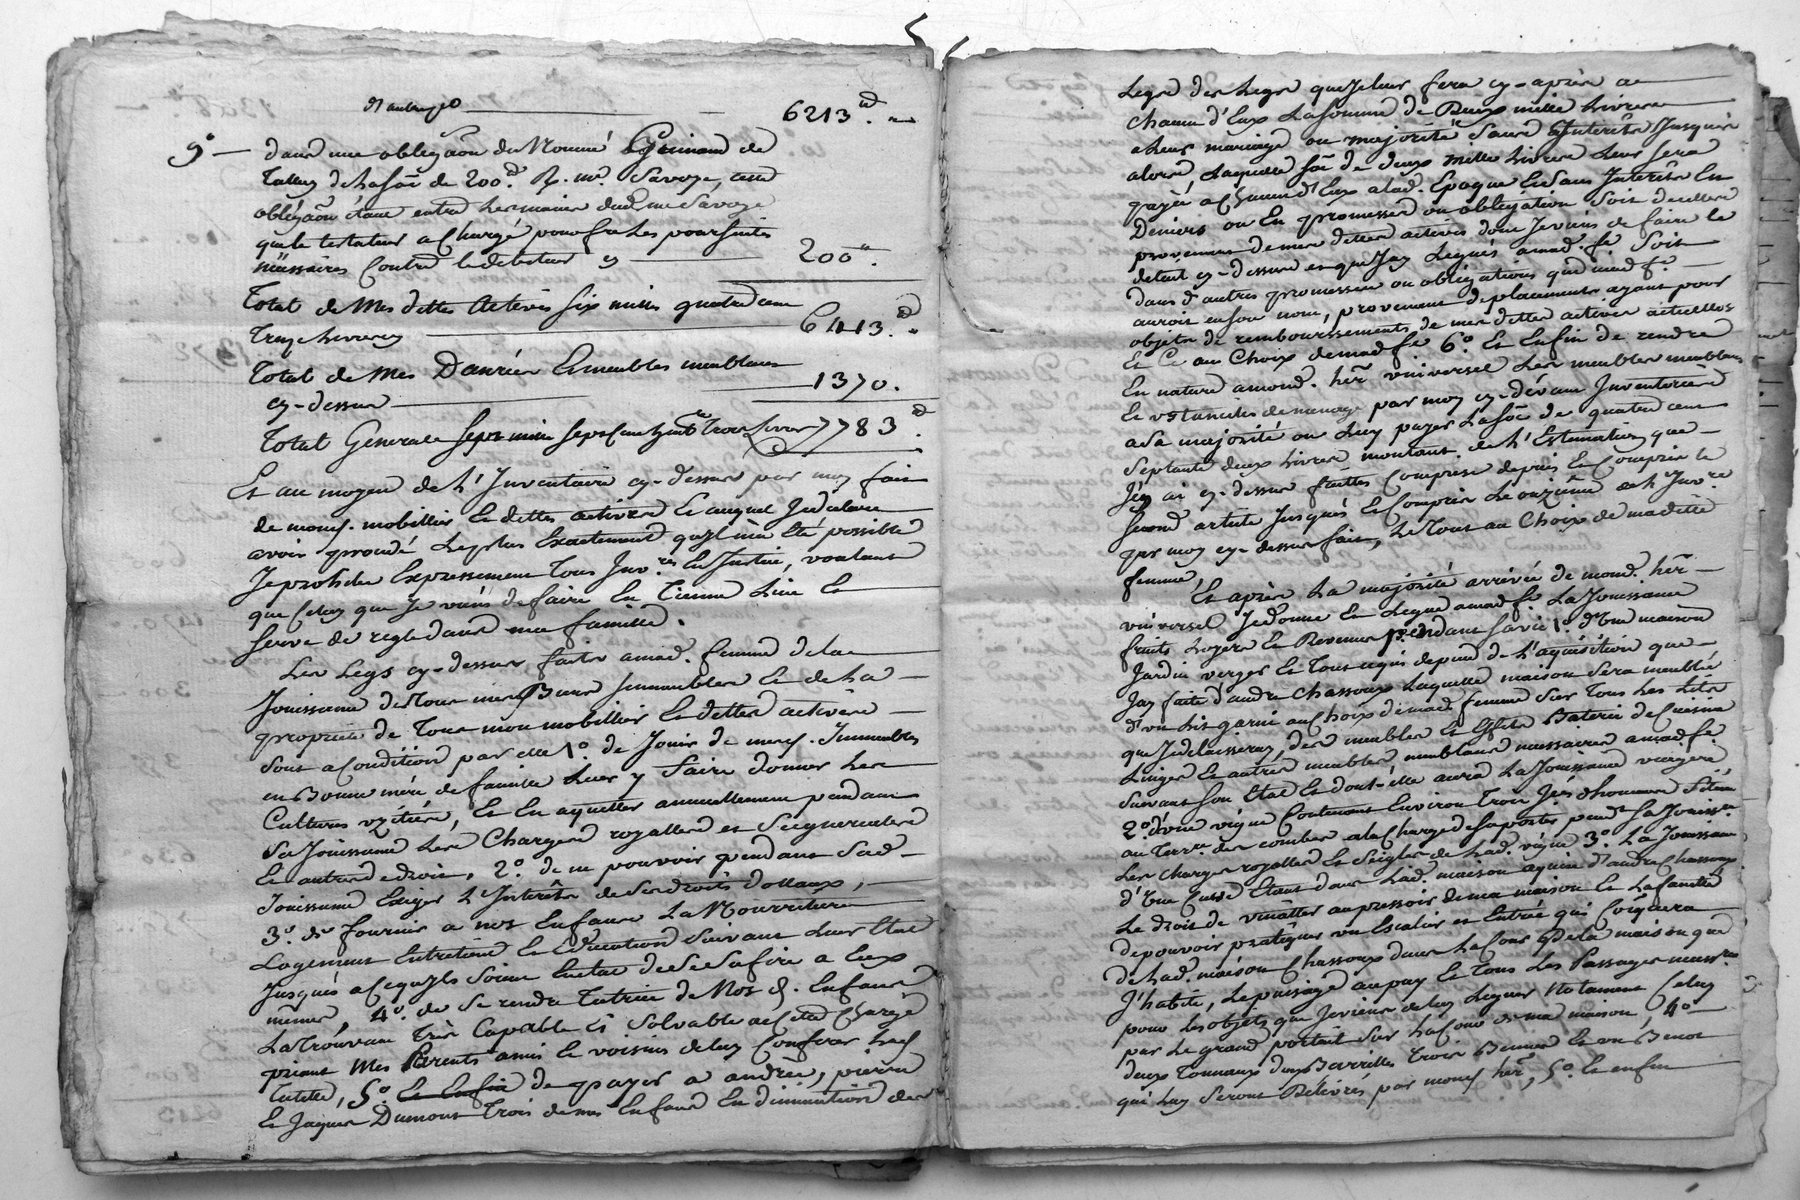 6213.
9° — dans une obligãon du Nommé de
de la sõe de 200. Savoye, cette
obligãon étant entre les mains dud. me Savoye
que le testateur a Chargé pour fre les poursuittes
nêssaires Contre le debiteur cy — 200.
Total de Mes dettes Actives six mille quatre cent
Treze Livres cy — 6413.
Total de Mes Danrées Et meubles meublans
cy-dessus — 1370.
Total Generale Sept mille sept Cent huitte Trois Livres 7783.
Et au moyen de L'Inventaire cy-dessus par moy fait
de mond. mobillier Et dettes actives Et auquel Je declare
avoir procedé Le plus Exactement qu'yl m'a Eté possible
Je prohibe Expressement Tous Inv.res En Justice, voulant
que Celuy que Je viens de faire En Tienne Lieu Et
serve de regle dans ma famille.
Les Legs cy-dessus faits a mad. femme de la
Jouissance de Tous mes Biens Immeubles Et de La
propriété de Tout mon mobillier Et dettes actives
sont a Condition par elle 1.° de Jouir de mesd. Immeubles
en Bonne mère de famille Leur y faire donner Les
Cultures, Et En aquitter annuellement pendant
Sa Jouissance Les Charges royalles et Seigneuriales
Et autres de droit, 2.° de ne pouvoir pendant Sad.
Jouissance Exiger L'Interêts de Ses droits dottaux,
3.° de fournir a nos Enfans La Nourriture
Logement Entretient Et Education Suivant Leur Etat
Jusqués a Ce qu'yls soient En état de Se Sufire a Eux
mêmes 4.° de Se rendre Tutrice de Nos d. Enfans
La Trouvant Très Capable Et Solvable a Cette Charge
priant Mes Parents amis Et voisins de Luy Conferer Lad.
Tutelle, 5.° Et Enfin de payer a andré, pierre
Et Jaques Dumont Trois de mes Enfans En diminution des
Legs des Legs que Je leur fera cy-après a
Chacun d'Eux La somme de Deux mille Livres
a Leur mariage ou majorité Sans Interêts Jusqués
alors, Laquelle sõe de deux mille Livres Leur sera
payée a Chacun d'Eux alad. Epoque Et Sans Interêts En
Deniers ou En promesses ou obligation Soit de celles
provenant de mes dettes actives dont Je viens de faire le
détail cy-dessus et que J'ay Legués amad. fe Soit
dans d'autres promesses ou obligations que mad. fe
auroit en son nom, provenant de placements ayant pour
objets de remboursements de mes dettes actives actuelles
Et Ce au Choix de mad. fe 6.° Et Enfin de rendre
En nature a mond. her. universel Les meubles meublans
Et ustancilles de menage par moy cy-devant Inventoriés
a Sa majorité ou Luy payer La sõe de quatre cent
Septante deux Livres montant de L'Estimation que
J'en ai cy-dessus faittes Comprise depuis Et Compris le
Second article Jusqués Et Compris Le onzième de L'Inv.re
par moy cy-dessus fait, Le Tout au Choix de madite
femme,
Et après La majorité arrivée de mond. her.
universel Je donne Et Legue a mad. fe La Jouissance
fruits Loyers Et Revenus pendant Sa vie 1.° d'une maison
Jardin verger Et Tout ce qui depend de L'aquisition que
J'ay faite d'andré Chassoux Laquelle maison Sera meublée
d'un Lit garni au Choix de mad. femme Sur Tous Les Lits
que Je delaisseray, des meubles Et Effets Baterie de Cuisine
Linges Et autres meubles meublans nessaires a mad. fe
Suivant Son Etat Et dont elle aura La Jouissance viagère
2.° d'une vigne Contenant Environ Trois d'hommes Située
au Terr.re des combes a La Charge de Suporter pend.t Sa Jouiss.ce
Les Charges royalles Et Seigles de Lad. vigne 3.° La Jouissance
d'une Cuve Etant dans Lad. maison aquise d'andré Chassoux
Le droit de au pressoir de ma maison Et La faculté
de pouvoir pratiquer un Escalier et Entrée qui
de Lad. maison Chassoux dans La Cour de La maison que
J'habite, Le puisage au puy Et Tous Les Passages ness.res
pour Les objets que Je viens de Luy Leguer Notament Celuy
par Le grand portail Sur La Cour de ma maison, 4.°
deux Tonneaux deux Barrilles Trois Bennes Et un Benot
qui Luy Seront Delivrés par mond. her., 5.° Et enfin